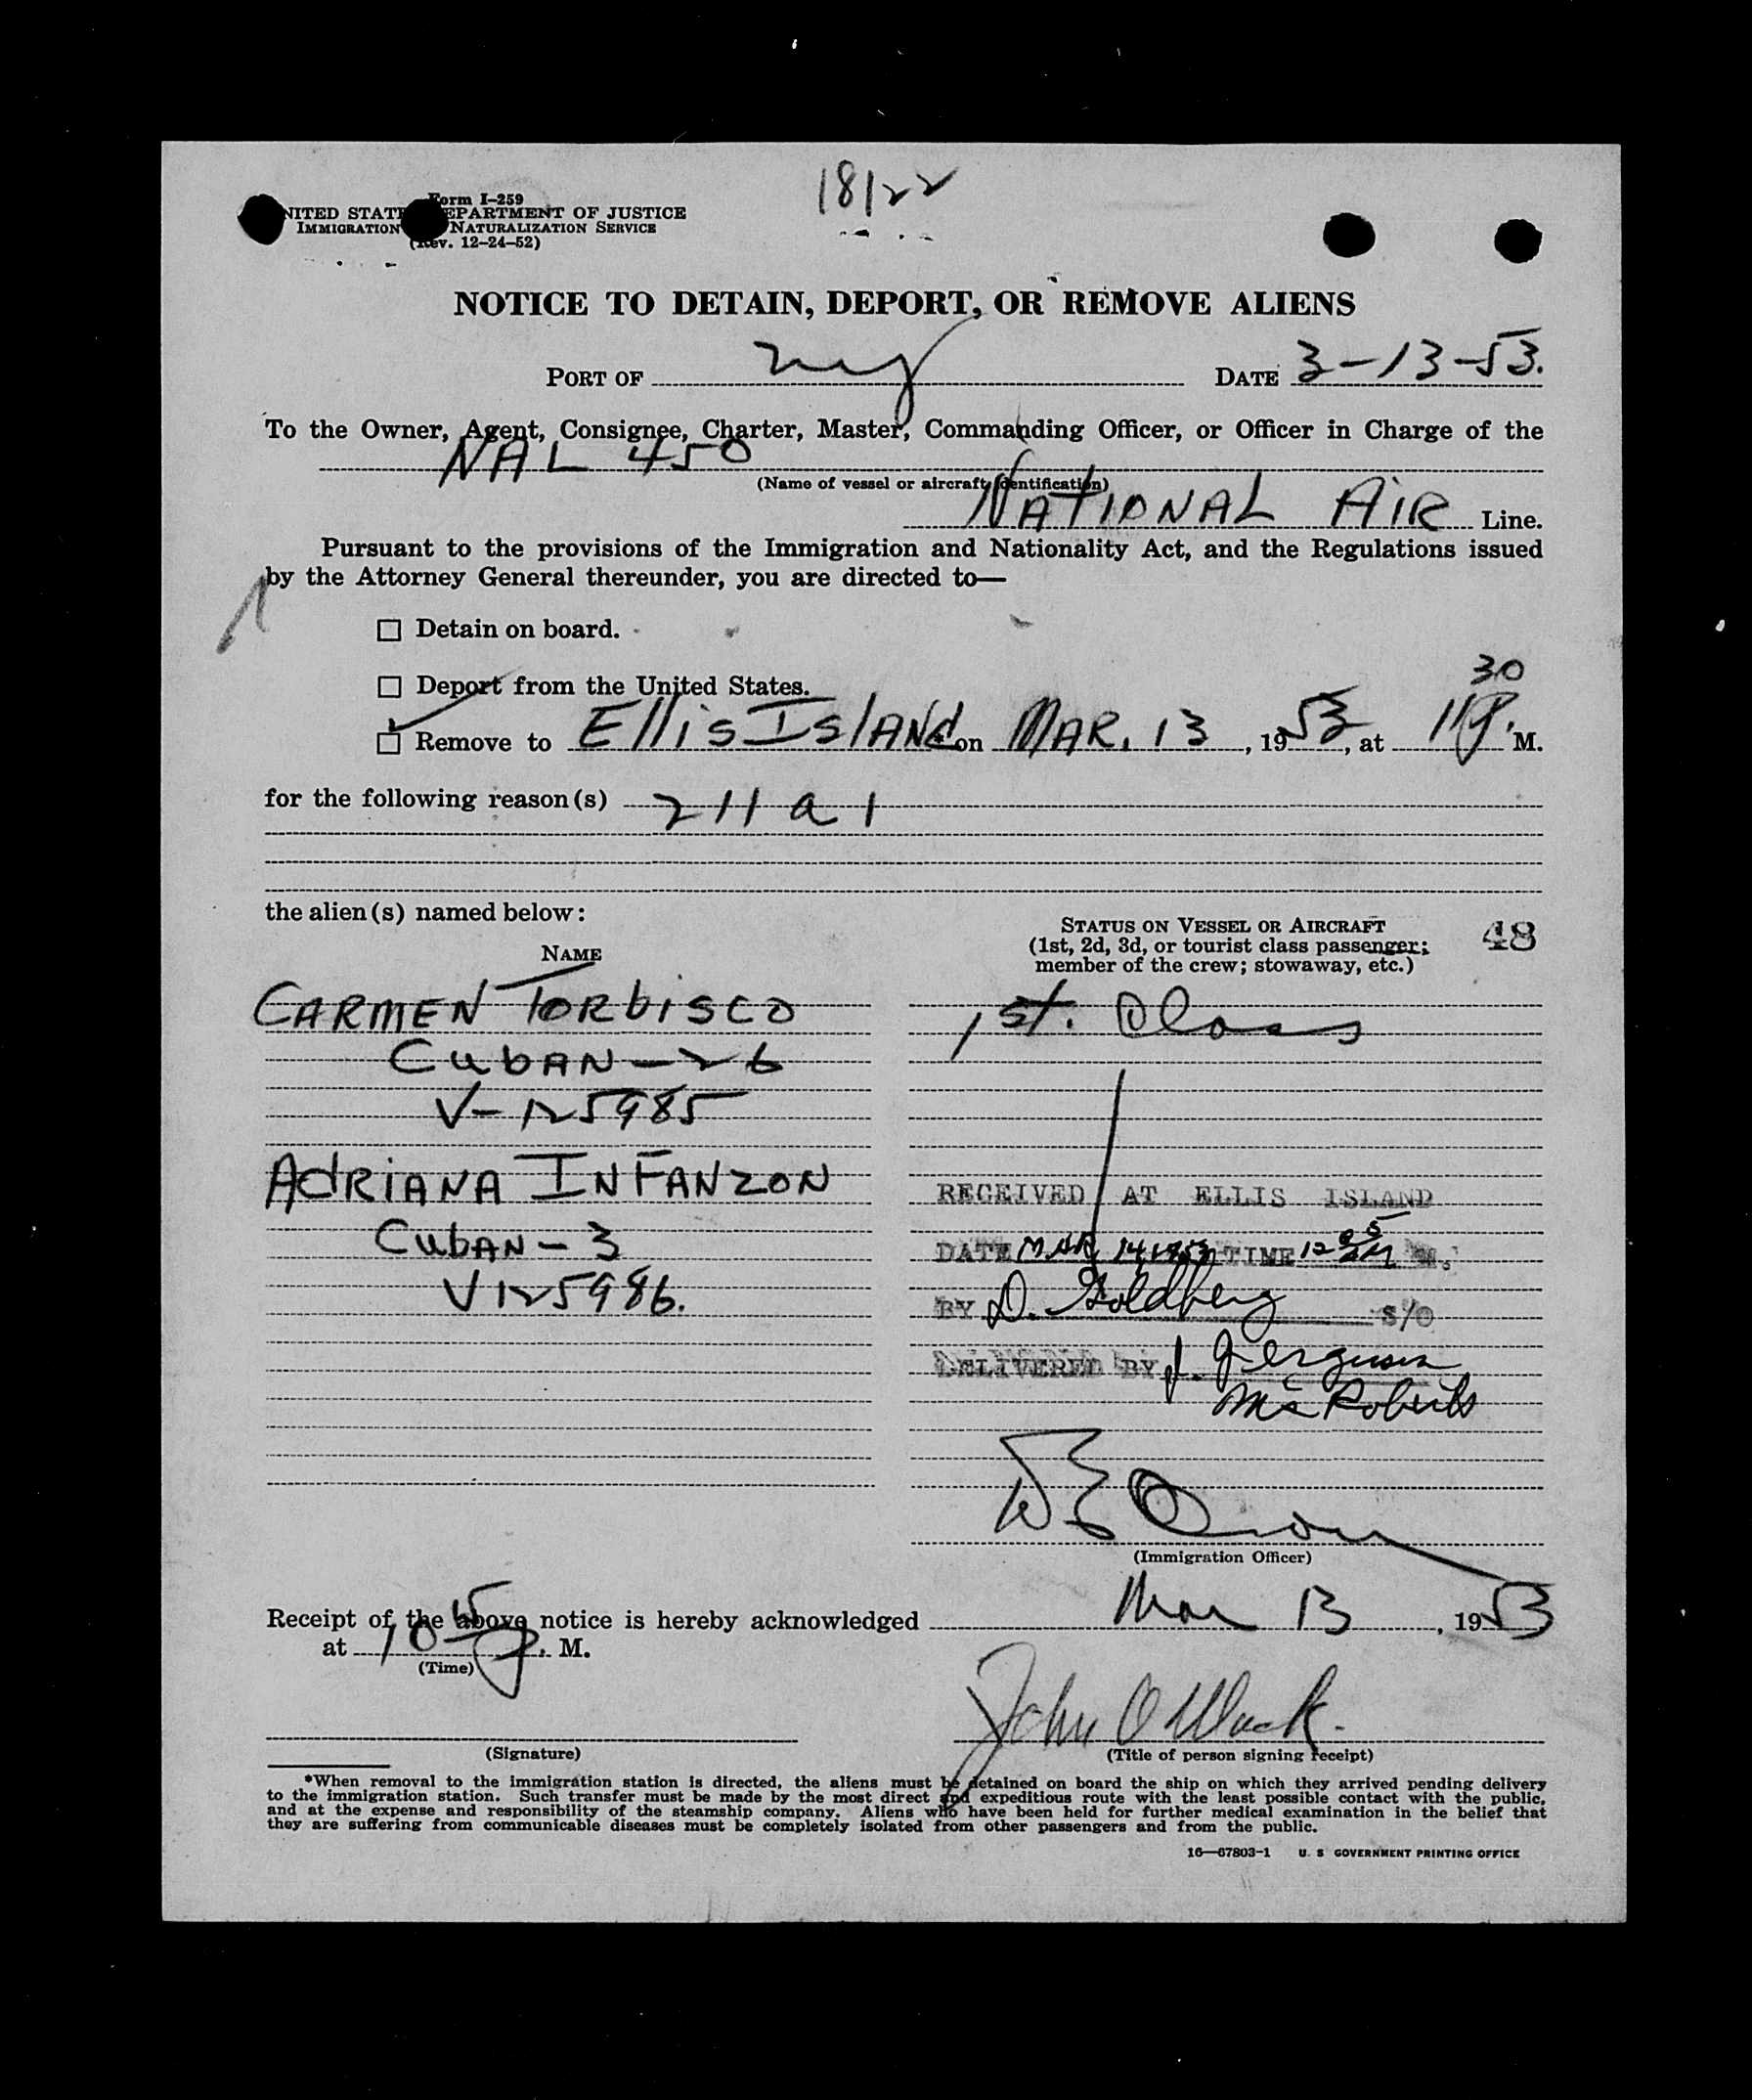 18122
Form I-259
NITED STAT EPARTMENT OF JUSTICE
IMMIGRATION NATURALIZATION SERVICE
(Rev. 12-24-52)
NOTICE TO DETAIN, DEPORT, OR REMOVE ALIENS
PORT OF NY DATE 3-13-53.
To the Owner, Agent, Consignee, Charter, Master, Commanding Officer, or Officer in Charge of the
NAL 450
(Name of vessel or aircraft identification)
NATIONAL AIR Line.
Pursuant to the provisions of the Immigration and Nationality Act, and the Regulations issued
by the Attorney General thereunder, you are directed to—
☐ Detain on board.
☐ Deport from the United States.
☑ Remove to Ellis Island on MAR. 13, 1953, at 11 30 P. M.
for the following reason(s) 211 a 1
the alien(s) named below:
NAME
STATUS ON VESSEL OR AIRCRAFT
(1st, 2d, 3d, or tourist class passenger;
member of the crew; stowaway, etc.)
48
CARMEN TORBISCO 1st. Class
CUBAN - 26
V-125985
ADRIANA INFANZON
CUBAN - 3
V125986.
RECEIVED AT ELLIS ISLAND
DATE MAR 14, 1953 TIME 12 05 AM M.
BY D. Goldberg S/O
DELIVERED BY J. Ferguson
McRoberts
(Immigration Officer)
Receipt of the above notice is hereby acknowledged Mar 13, 1953
at 10 45 P. M.
(Time)
John
(Signature)
(Title of person signing receipt)
*When removal to the immigration station is directed, the aliens must be detained on board the ship on which they arrived pending delivery
to the immigration station. Such transfer must be made by the most direct and expeditious route with the least possible contact with the public,
and at the expense and responsibility of the steamship company. Aliens who have been held for further medical examination in the belief that
they are suffering from communicable diseases must be completely isolated from other passengers and from the public.
16—67803-1 U. S GOVERNMENT PRINTING OFFICE